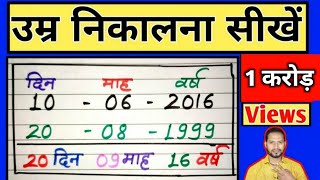 उम्र निकालना सीखें
1 करोड़
Views
दिन माह वर्ष
10 - 06 - 2016
20 - 08 - 1999
20 दिन 09 माह 16 वर्ष